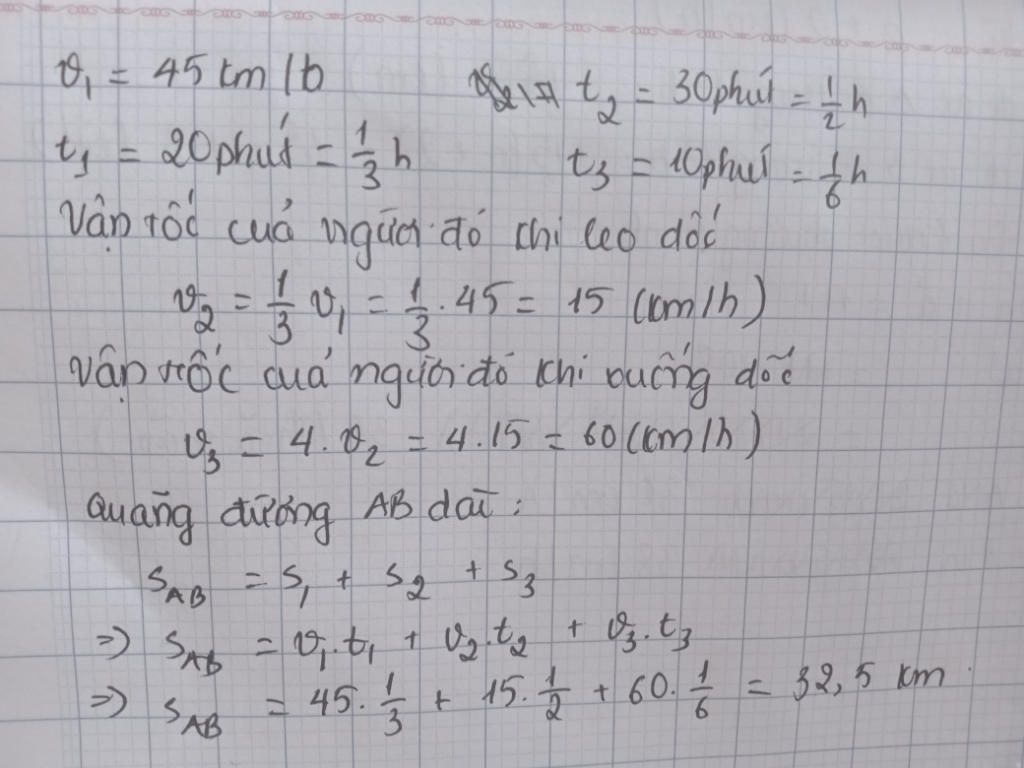 v₁ = 45 km/h t₂ = 30 phút = 1/2 h
t₁ = 20 phút = 1/3 h t₃ = 10 phút = 1/6 h
Vận tốc của người đó khi leo dốc
v₂ = 1/3 v₁ = 1/3 . 45 = 15 (km/h)
Vận tốc của người đó khi xuống dốc
v₃ = 4 . v₂ = 4 . 15 = 60 (km/h)
Quãng đường AB dài :
S_AB = S₁ + S₂ + S₃
=> S_AB = v₁.t₁ + v₂.t₂ + v₃.t₃
=> S_AB = 45. 1/3 + 15. 1/2 + 60. 1/6 = 32,5 km.